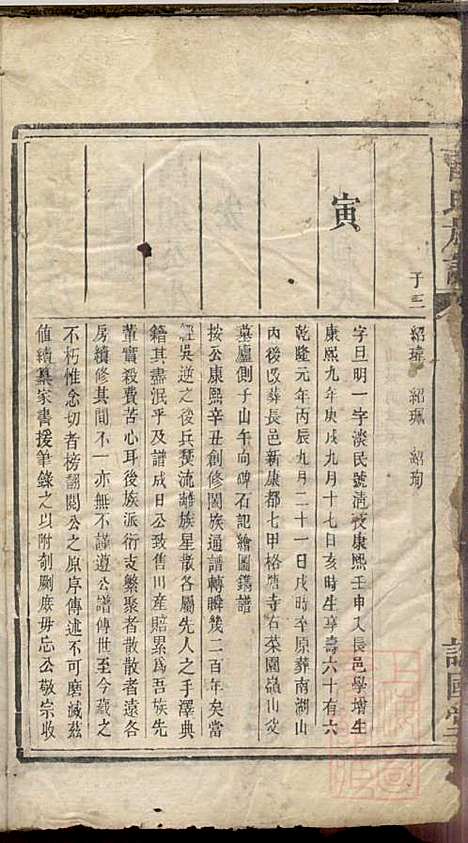 子三 紹瑋 紹珮 紹珣
寅
字旦明一字淡民號清
康熙壬申入長邑學增生
康熙九年庚戌九月十七日亥時生享壽六十有六
乾隆元年丙辰九月二十一日戌時至原葬南湖山
內後改葬長邑新康都七甲格塘寺右菜園嶺山
墓廬側子山午向碑石記繪圖鐫譜
按公康熙辛丑創修闔族通譜轉瞬幾二百年矣當
經吳逆之後兵燹流離族星散各屬先人之手澤典
籍其盡泯乎及譜成日公致售田產賠累爲吾族先
輩實殺費苦心耳後族派衍支繁聚者散散者遠各
房續修其間不一亦無不謹遵公譜傳世至今藏之
不朽惟念切者榜譜閱公之原序傳述不可磨滅茲
値續纂家書援筆錄之以附剞劂庶毋忘公敬宗收
氏族譜